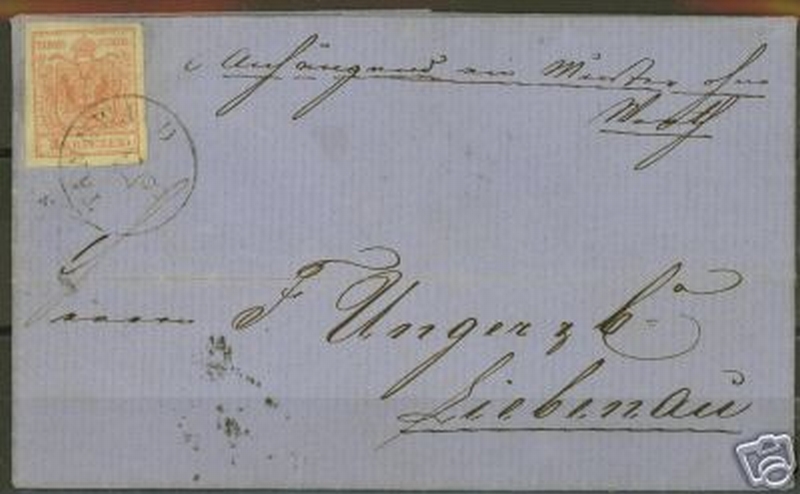 Anhängend ein Muster ohne
Werth
Herrn F Unger & Co
Liebenau
KREUZER